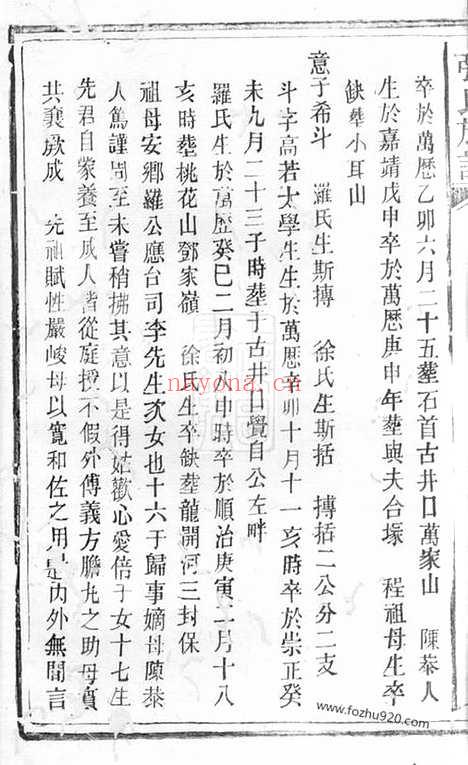 卒於萬歷乙卯六月二十五塟石首古井口萬家山　陳恭人
生於嘉靖戊申卒於萬歷庚申年塟與夫合塚　程祖母生卒
缺塟小耳山
意子希斗　羅氏生斯摶　徐氏生斯括　摶括二公分二支
斗字高若太學生生於萬歷辛卯十月十一亥時卒於崇正癸
未九月二十三子時塟于古井口覺自公左畔
羅氏生於萬歷癸巳二月初八申時卒於順治庚寅一月十八
亥時塟桃花山鄧家嶺　徐氏生卒缺塟龍開河三封保
祖母安鄉羅公應台司李先生次女也十六于歸事嫡母陳恭
人篤謹問至未嘗稍拂其意以是得姑歡心愛倍于女十七生
先君自蒙養至成人皆從庭授不假外傅義方膽丸之助母實
共襄厥成　先祖賦性嚴峻母以寬和佐之用是內外無間言
氏族譜
nayona.cn
www.fozhu920.com